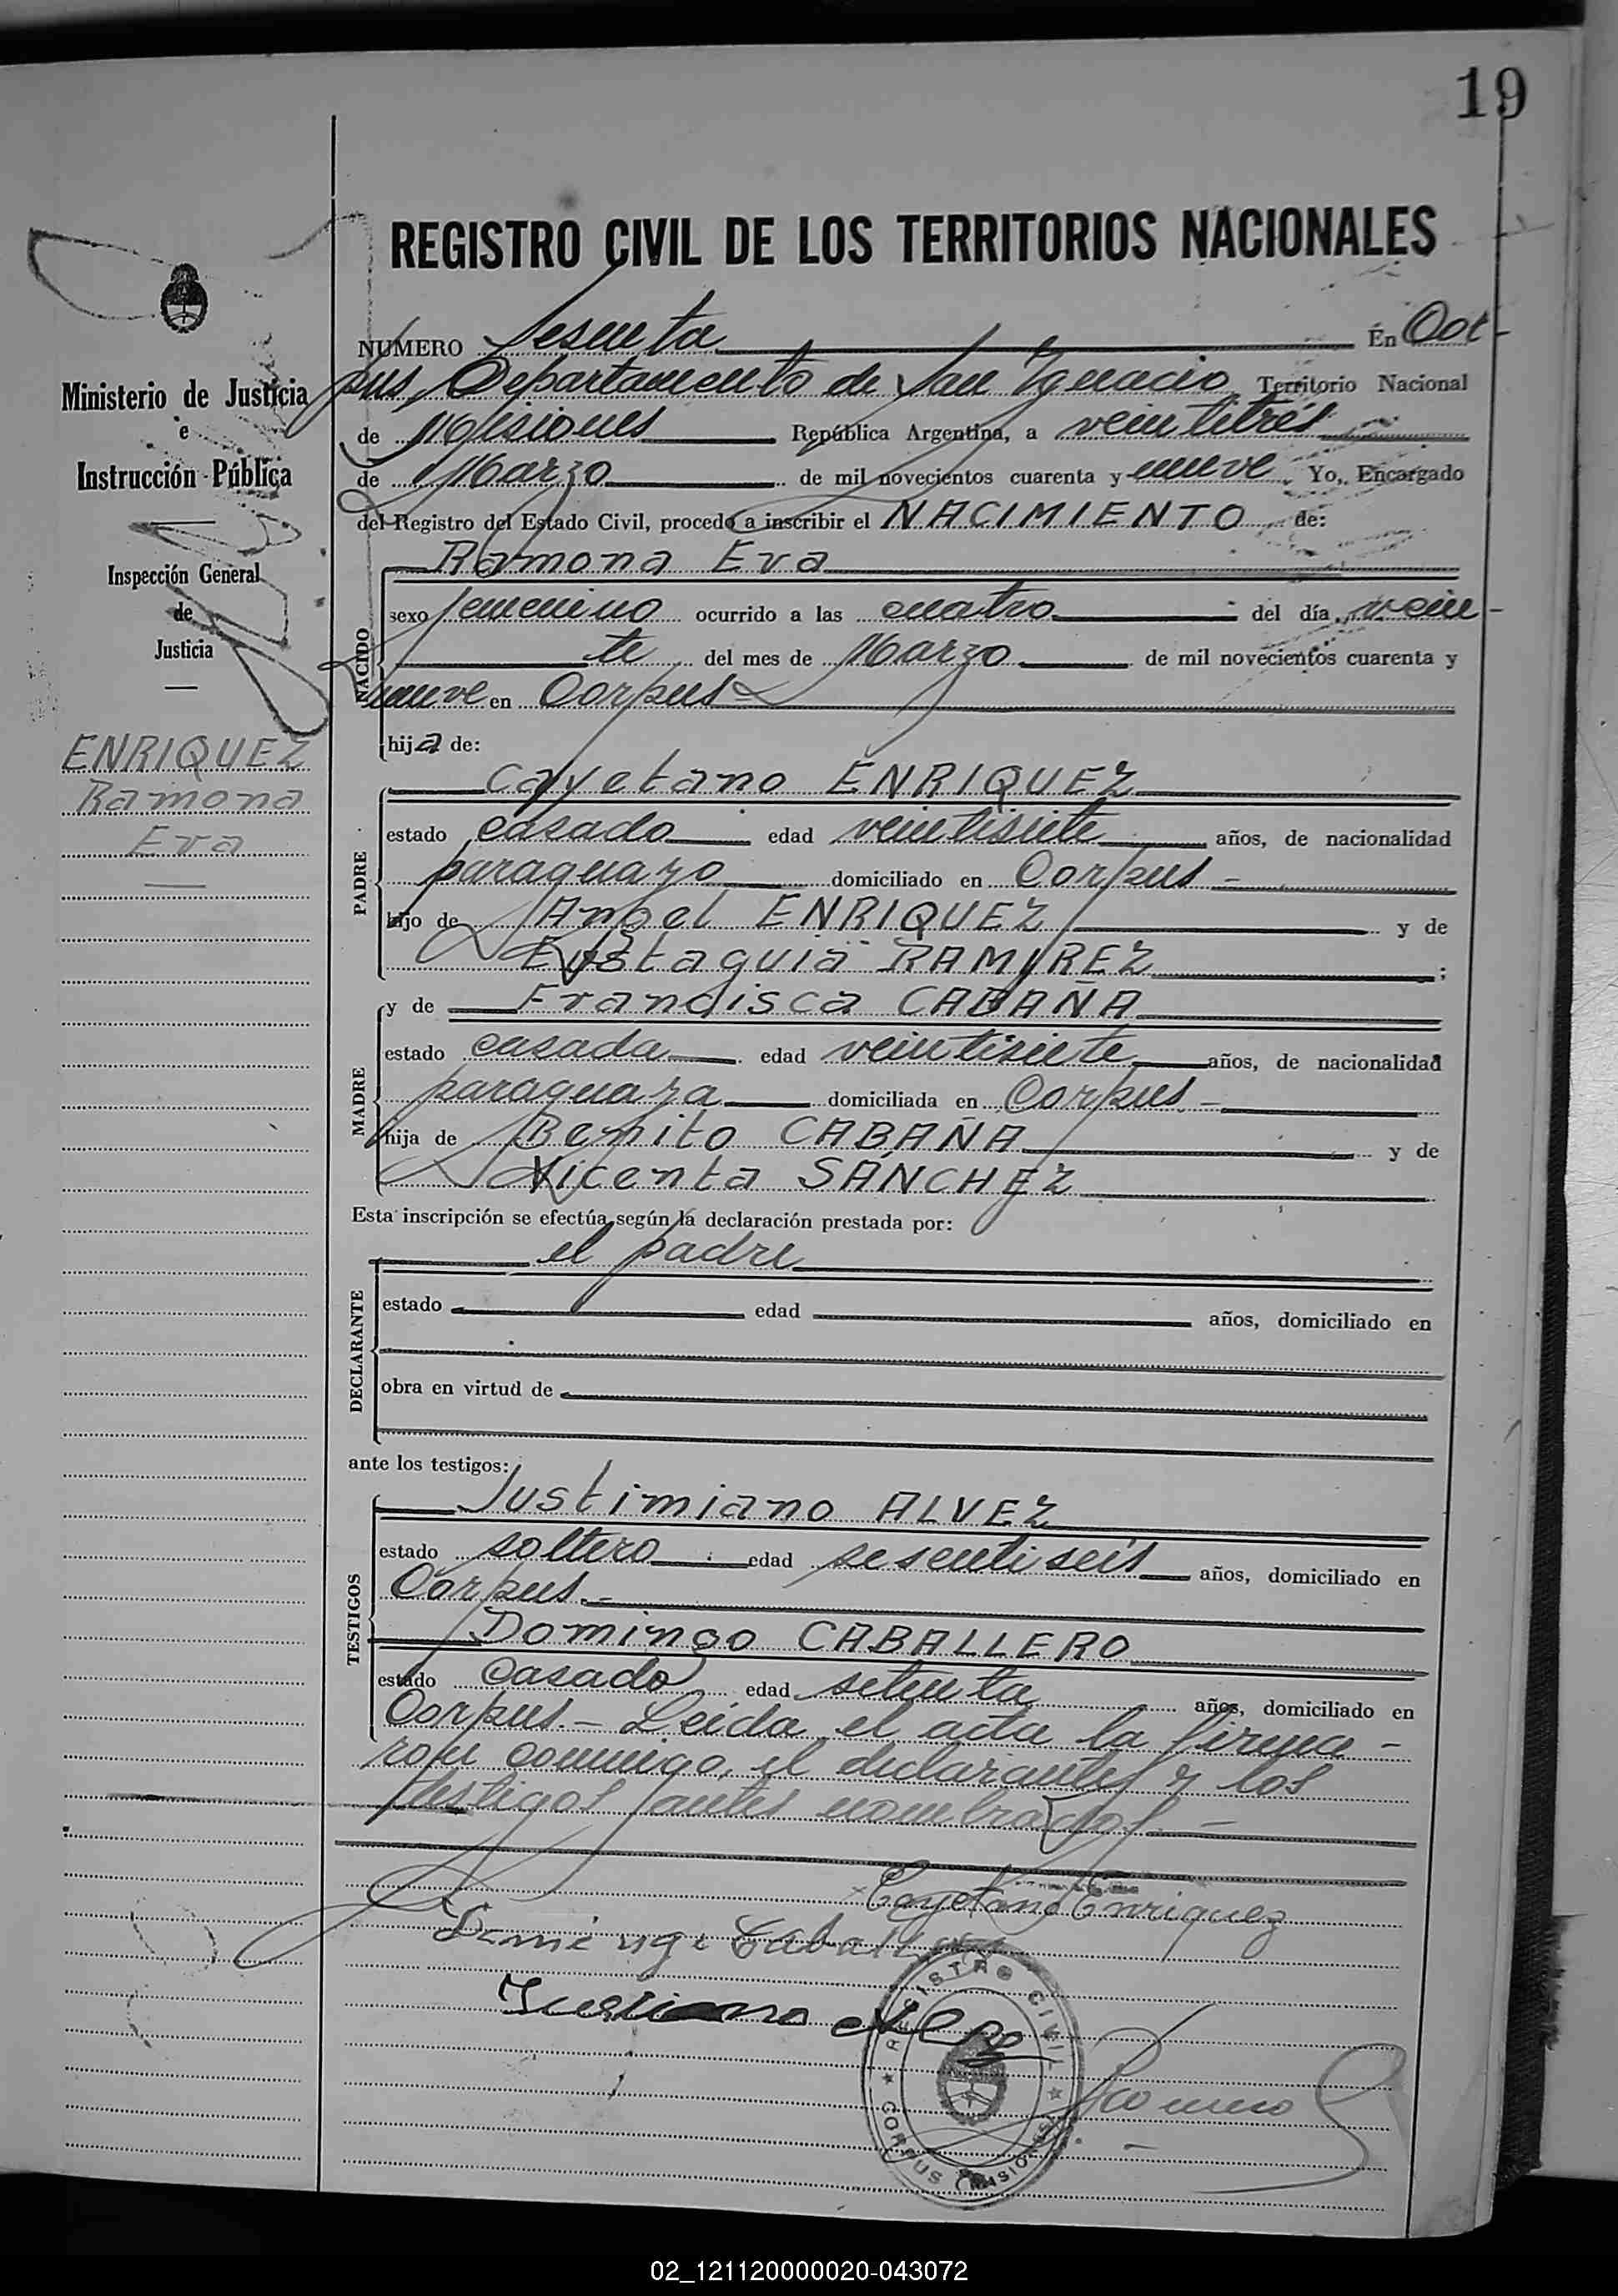 19
REGISTRO CIVIL DE LOS TERRITORIOS NACIONALES
Ministerio de Justicia
e
Instrucción Pública
Inspección General
de
Justicia
ENRIQUEZ
Ramona
Eva
NUMERO Sesenta En Cor-
pus, Departamento de San Ignacio Territorio Nacional
de Misiones República Argentina, a veintitrés
de Marzo de mil novecientos cuarenta y nueve Yo, Encargado
del Registro del Estado Civil, procedo a inscribir el NACIMIENTO de:
Ramona Eva
NACIDO
sexo femenino ocurrido a las cuatro del día vein-
te del mes de Marzo de mil novecientos cuarenta y
nueve en Corpus
hija de:
Cayetano ENRIQUEZ
PADRE
estado casado edad veintisiete años, de nacionalidad
paraguayo domiciliado en Corpus -
hijo de Angel ENRIQUEZ y de
Eustaquia RAMIREZ ;
y de Francisca CABAÑA
MADRE
estado casada edad veintisiete años, de nacionalidad
paraguaya domiciliada en Corpus. -
hija de Benito CABAÑA y de
Vicenta SÁNCHEZ
Esta inscripción se efectúa según la declaración prestada por:
el padre
DECLARANTE
estado edad años, domiciliado en
obra en virtud de
ante los testigos:
Justimiano ALVEZ
TESTIGOS
estado soltero edad sesentiseis años, domiciliado en
Corpus.-
Domingo CABALLERO
estado casado edad setenta años, domiciliado en
Corpus.- Leída el acta la firma-
ron conmigo, el declarante y los
testigos antes nombrados.-
Cayetano Enriquez
Domingo Caballero
REGISTRO CIVIL
CORPUS (MISIONES)
Romero
02_121120000020-043072